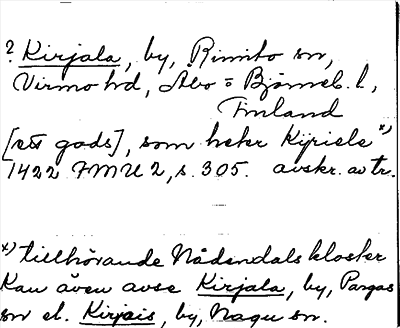 ? Kirjala, by, Rimito sn,
Virmo hd, Åbo = Björneb. l,
Finland
[ett gods], som heter Kyriele x)
1422 FMU 2, s. 305. avskr. av tr.
x) tillhörande Nådendals kloster
Kan även avse Kirjala, by, Pargas
sn el. Kirjais, by, Nagu sn.